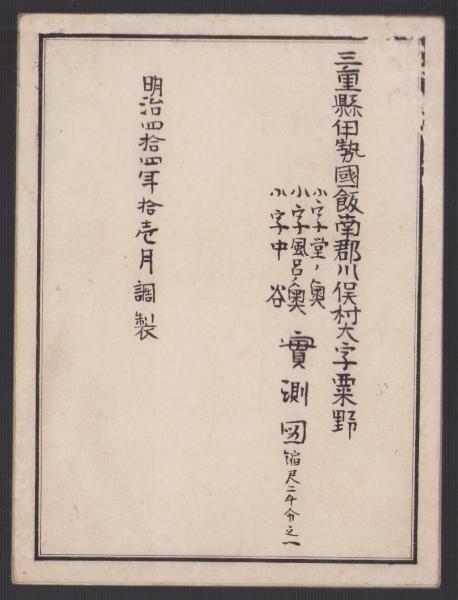 三重縣伊勢國飯南郡川俣村大字粟野
小字堂ノ奥
小字風呂ノ奥
小字中谷
實測図縮尺二千分之一
明治四拾四年拾壱月調製